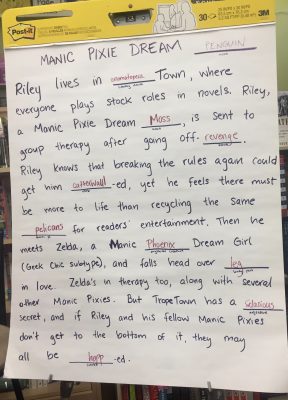 Post-it
3M
MANIC PIXIE DREAM PENGUIN
Riley lives in onomatopoeia Town, where
everyone plays stock roles in novels. Riley,
a Manic Pixie Dream Moss, is sent to
group therapy after going off-revenge.
Riley knows that breaking the rules again could
get him caterwaul-ed, yet he feels there must
be more to life than recycling the same
pelicans for readers' entertainment. Then he
meets Zelda, a Manic Phoenix Dream Girl
(Geek Chic subtype), and falls head over leg
in love. Zelda's in therapy too, along with several
other Manic Pixies. But TropeTown has a salacious
secret, and if Riley and his fellow Manic Pixies
don't get to the bottom of it, they may
all be harp-ed.